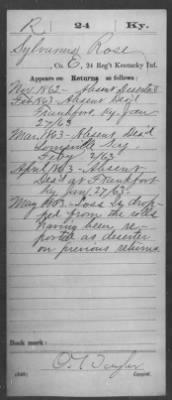 R | 24 | Ky.
Sylvanus Rose
Co. E, 24 Reg't Kentucky Inf.
Appears on Returns as follows:
Nov. 1862 - Absent Deserted
Feb 1863 - Absent Des'd
Frankfort, Ky. Jan
27/63
Mar. 1863 - Absent Des'd
Louisville Ky.
Feby 2/63
April 1863 - Absent
Des'd at Frankfort
Ky Jan 27/63.
May 1863 - Loss by drop-
ped from the rolls
having been re-
ported as deserter
on previous returns
Book mark:
(546)
Copyist.